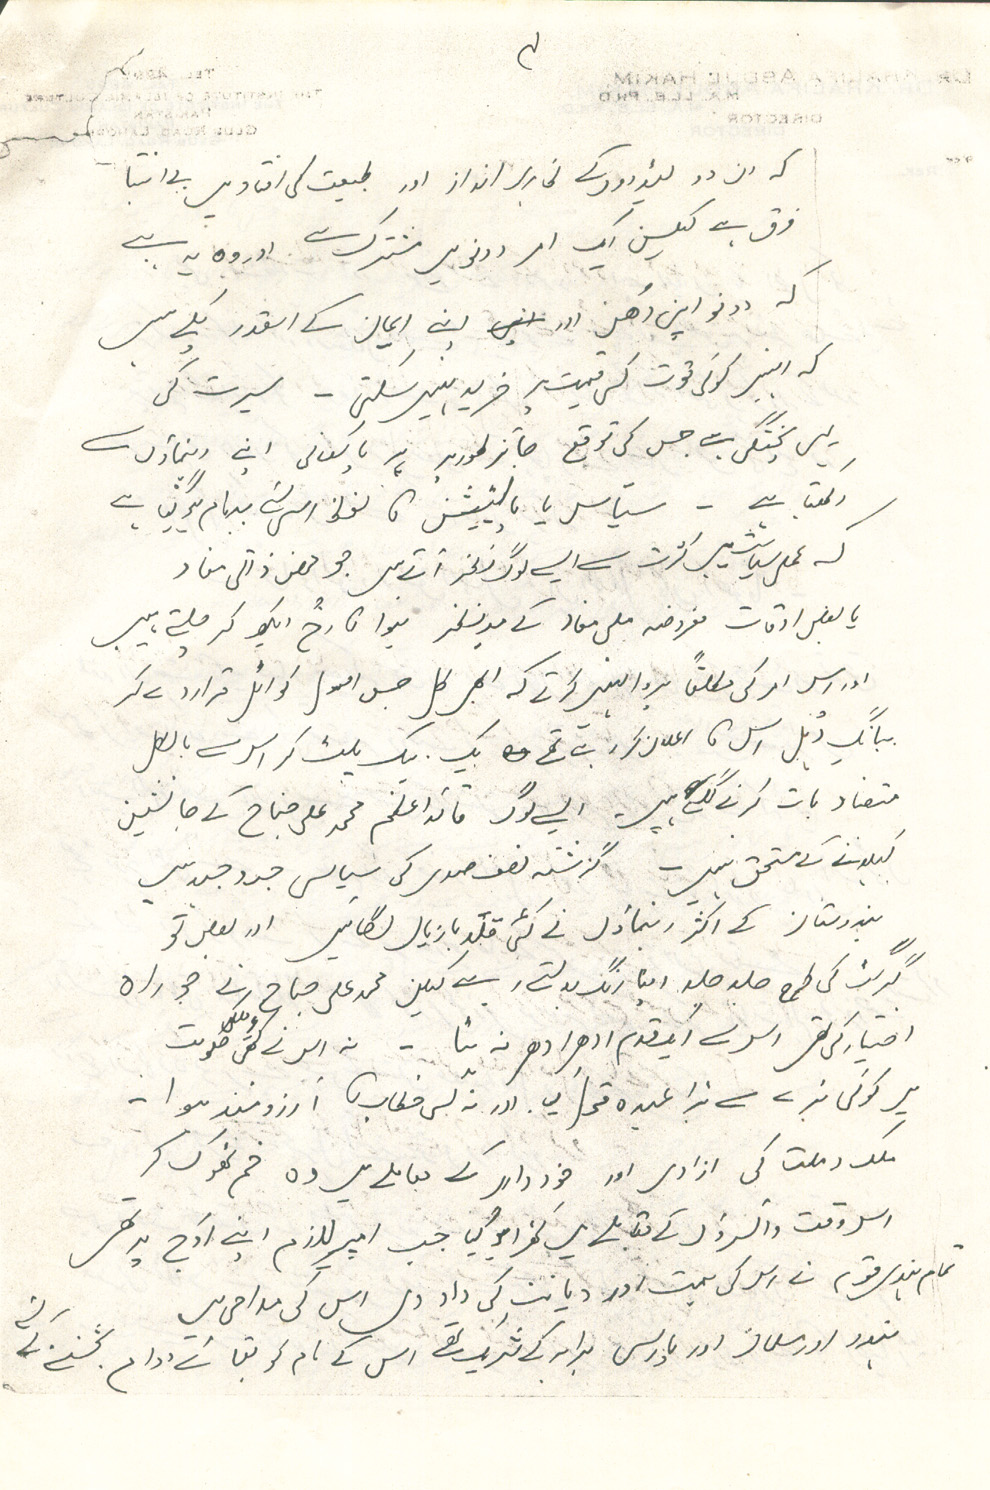 ۴
کہ ان دو لیڈروں کے ظاہری انداز اور طبیعت کی افتاد میں بے انتہا
فرق ہے لیکن ایک امر دونو میں مشترک ہے اور وہ یہ ہے
کہ دونو اپنی دُھن اور اپنے ایمان کے اسقدر پکے ہیں
کہ انہیں کوئی قوت کسی قیمت پر خرید نہیں سکتی - سیرت کی
یہی پختگی ہے جس کی توقع جائز طور پر پاکستانی اپنے رہنماؤں سے
رکھتا ہے - سیاسی یا پالیٹیشن کا لفظ اسی لئے بدنام ہو گیا ہے
کہ عملی سیاست میں کثرت سے ایسے لوگ نظر آتے ہیں جو محض ذاتی مفاد
یا بعض اوقات مفروضہ ملی مفاد کے مدِنظر ہوا کا رخ دیکھ کر چلتے ہیں
اور اس امر کی مطلقاً پروا نہیں کرتے کہ ابھی کل جس اصول کو اٹل قرار دے کر
ببانگِ دُہل اس کا اعلان کر رہے تھے یک بیک پلٹ کر اس سے بالکل
متضاد بات کرنے لگے ہیں - ایسے لوگ قائد اعظم محمد علی جناح کے جانشین
کہلانے کے مستحق نہیں - گزشتہ نصف صدی کی سیاسی جدوجہد میں
ہندوستان کے اکثر رہنماؤں نے کئی قلابازیاں لگائیں اور بعض تو
گرگٹ کی طرح جلد جلد اپنا رنگ بدلتے رہے لیکن محمد علی جناح نے جو راہ
اختیار کی تھی اس سے ایک قدم ادھر ادھر نہ ہٹا - نہ اس نے کبھی حکومت
میں کوئی بڑے سے بڑا عہدہ قبول کیا اور نہ کسی خطاب کا آرزومند ہوا -
ملک و ملت کی آزادی اور خودداری کے معاملے میں وہ خم ٹھوک کر
اس وقت وائسرؤں کے مقابلے میں کھڑا ہو گیا جب امپیریلزم اپنے اوج پر تھی
تمام ہندی قوم نے اس کی ہمت اور دیانت کی داد دی اس کی مداحی میں
ہندو اور مسلمان اور پارسی برابر کے شریک تھے اس کے نام کو بقائے دوام بخشنے کے لئے